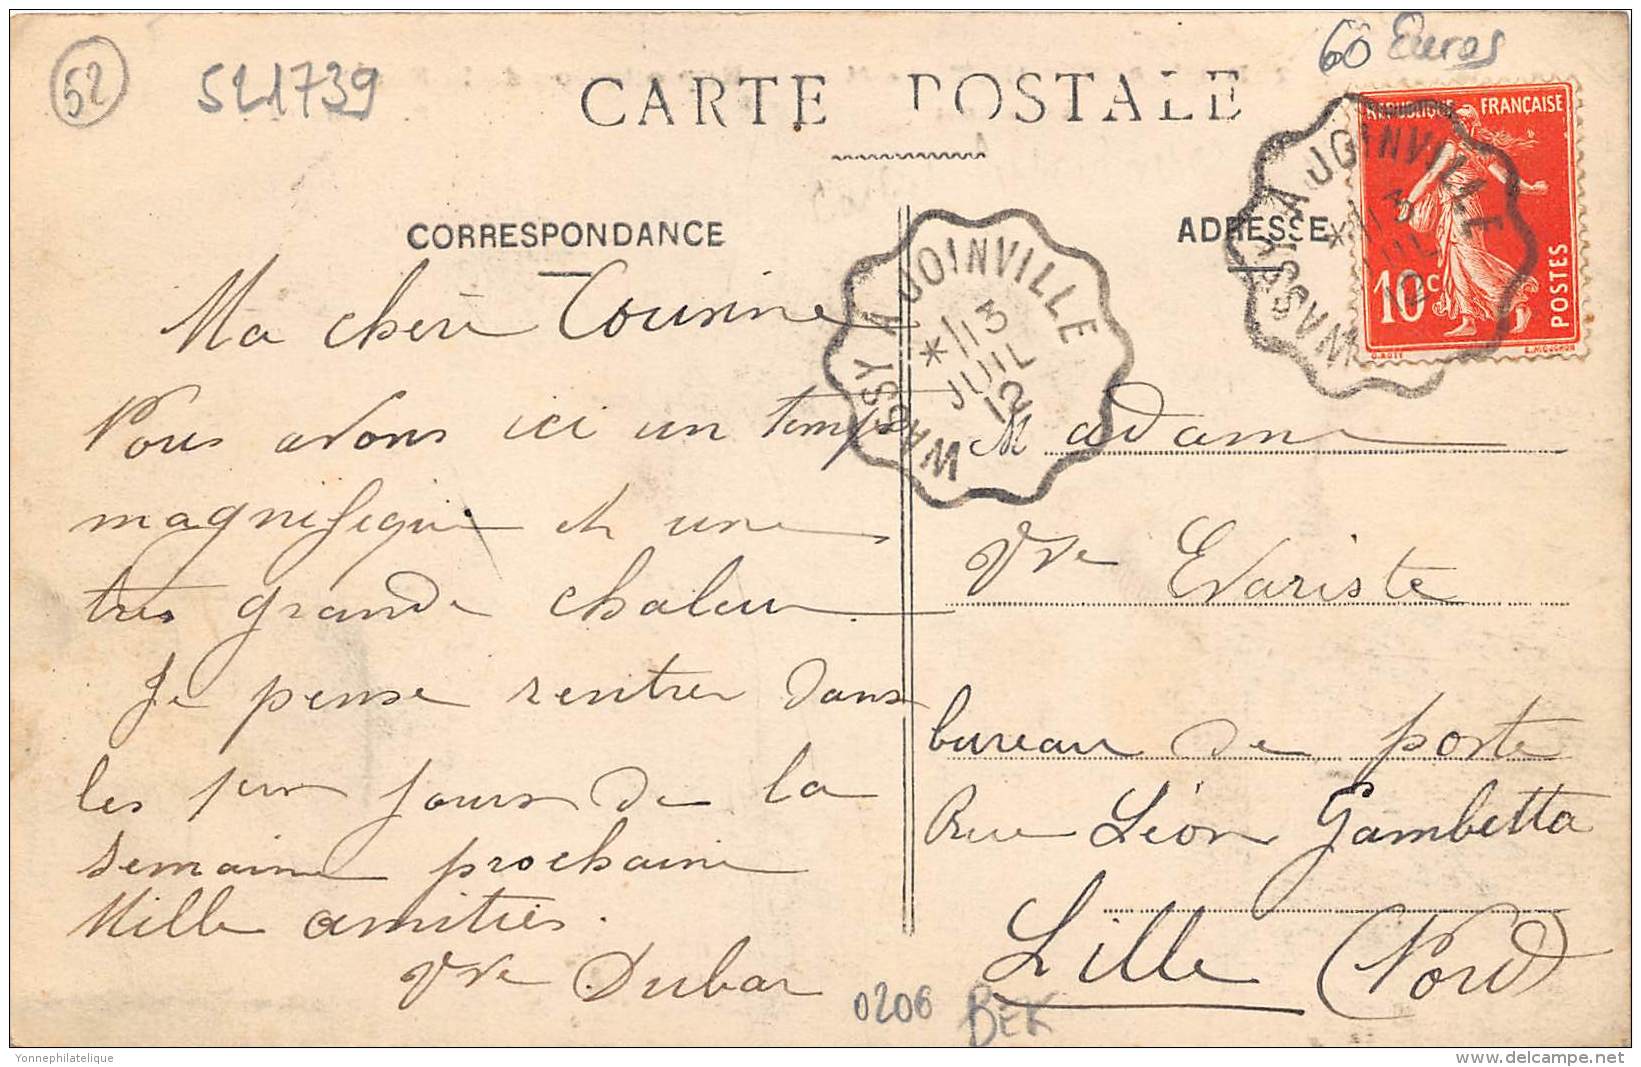 52
521739
60 Euros
CARTE POSTALE
CORRESPONDANCE
ADRESSE
REPUBLIQUE FRANÇAISE
10c
POSTES
O.ROTY
E.MOUCHON
WASSY A JOINVILLE
*13
JUIL
12
WASSY A JOINVILLE
*13
JUIL
12
Ma chère Cousine
Nous avons ici un temps
magnifique et une
très grande chaleur
Je pense rentrer dans
les 1ers jours de la
semaine prochaine
Mille amitiés.
Vve Dubar
Madame
Vve Evariste
bureau de poste
Rue Léon Gambetta
Lille (Nord)
0206 BEK
Yonnephilatelie
www.delcampe.net